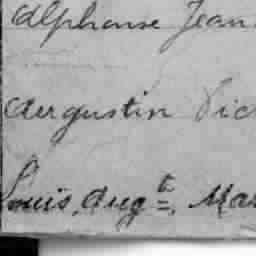 Alphonse Jean
Augustin Vic
Louis, Aug^t, Mar